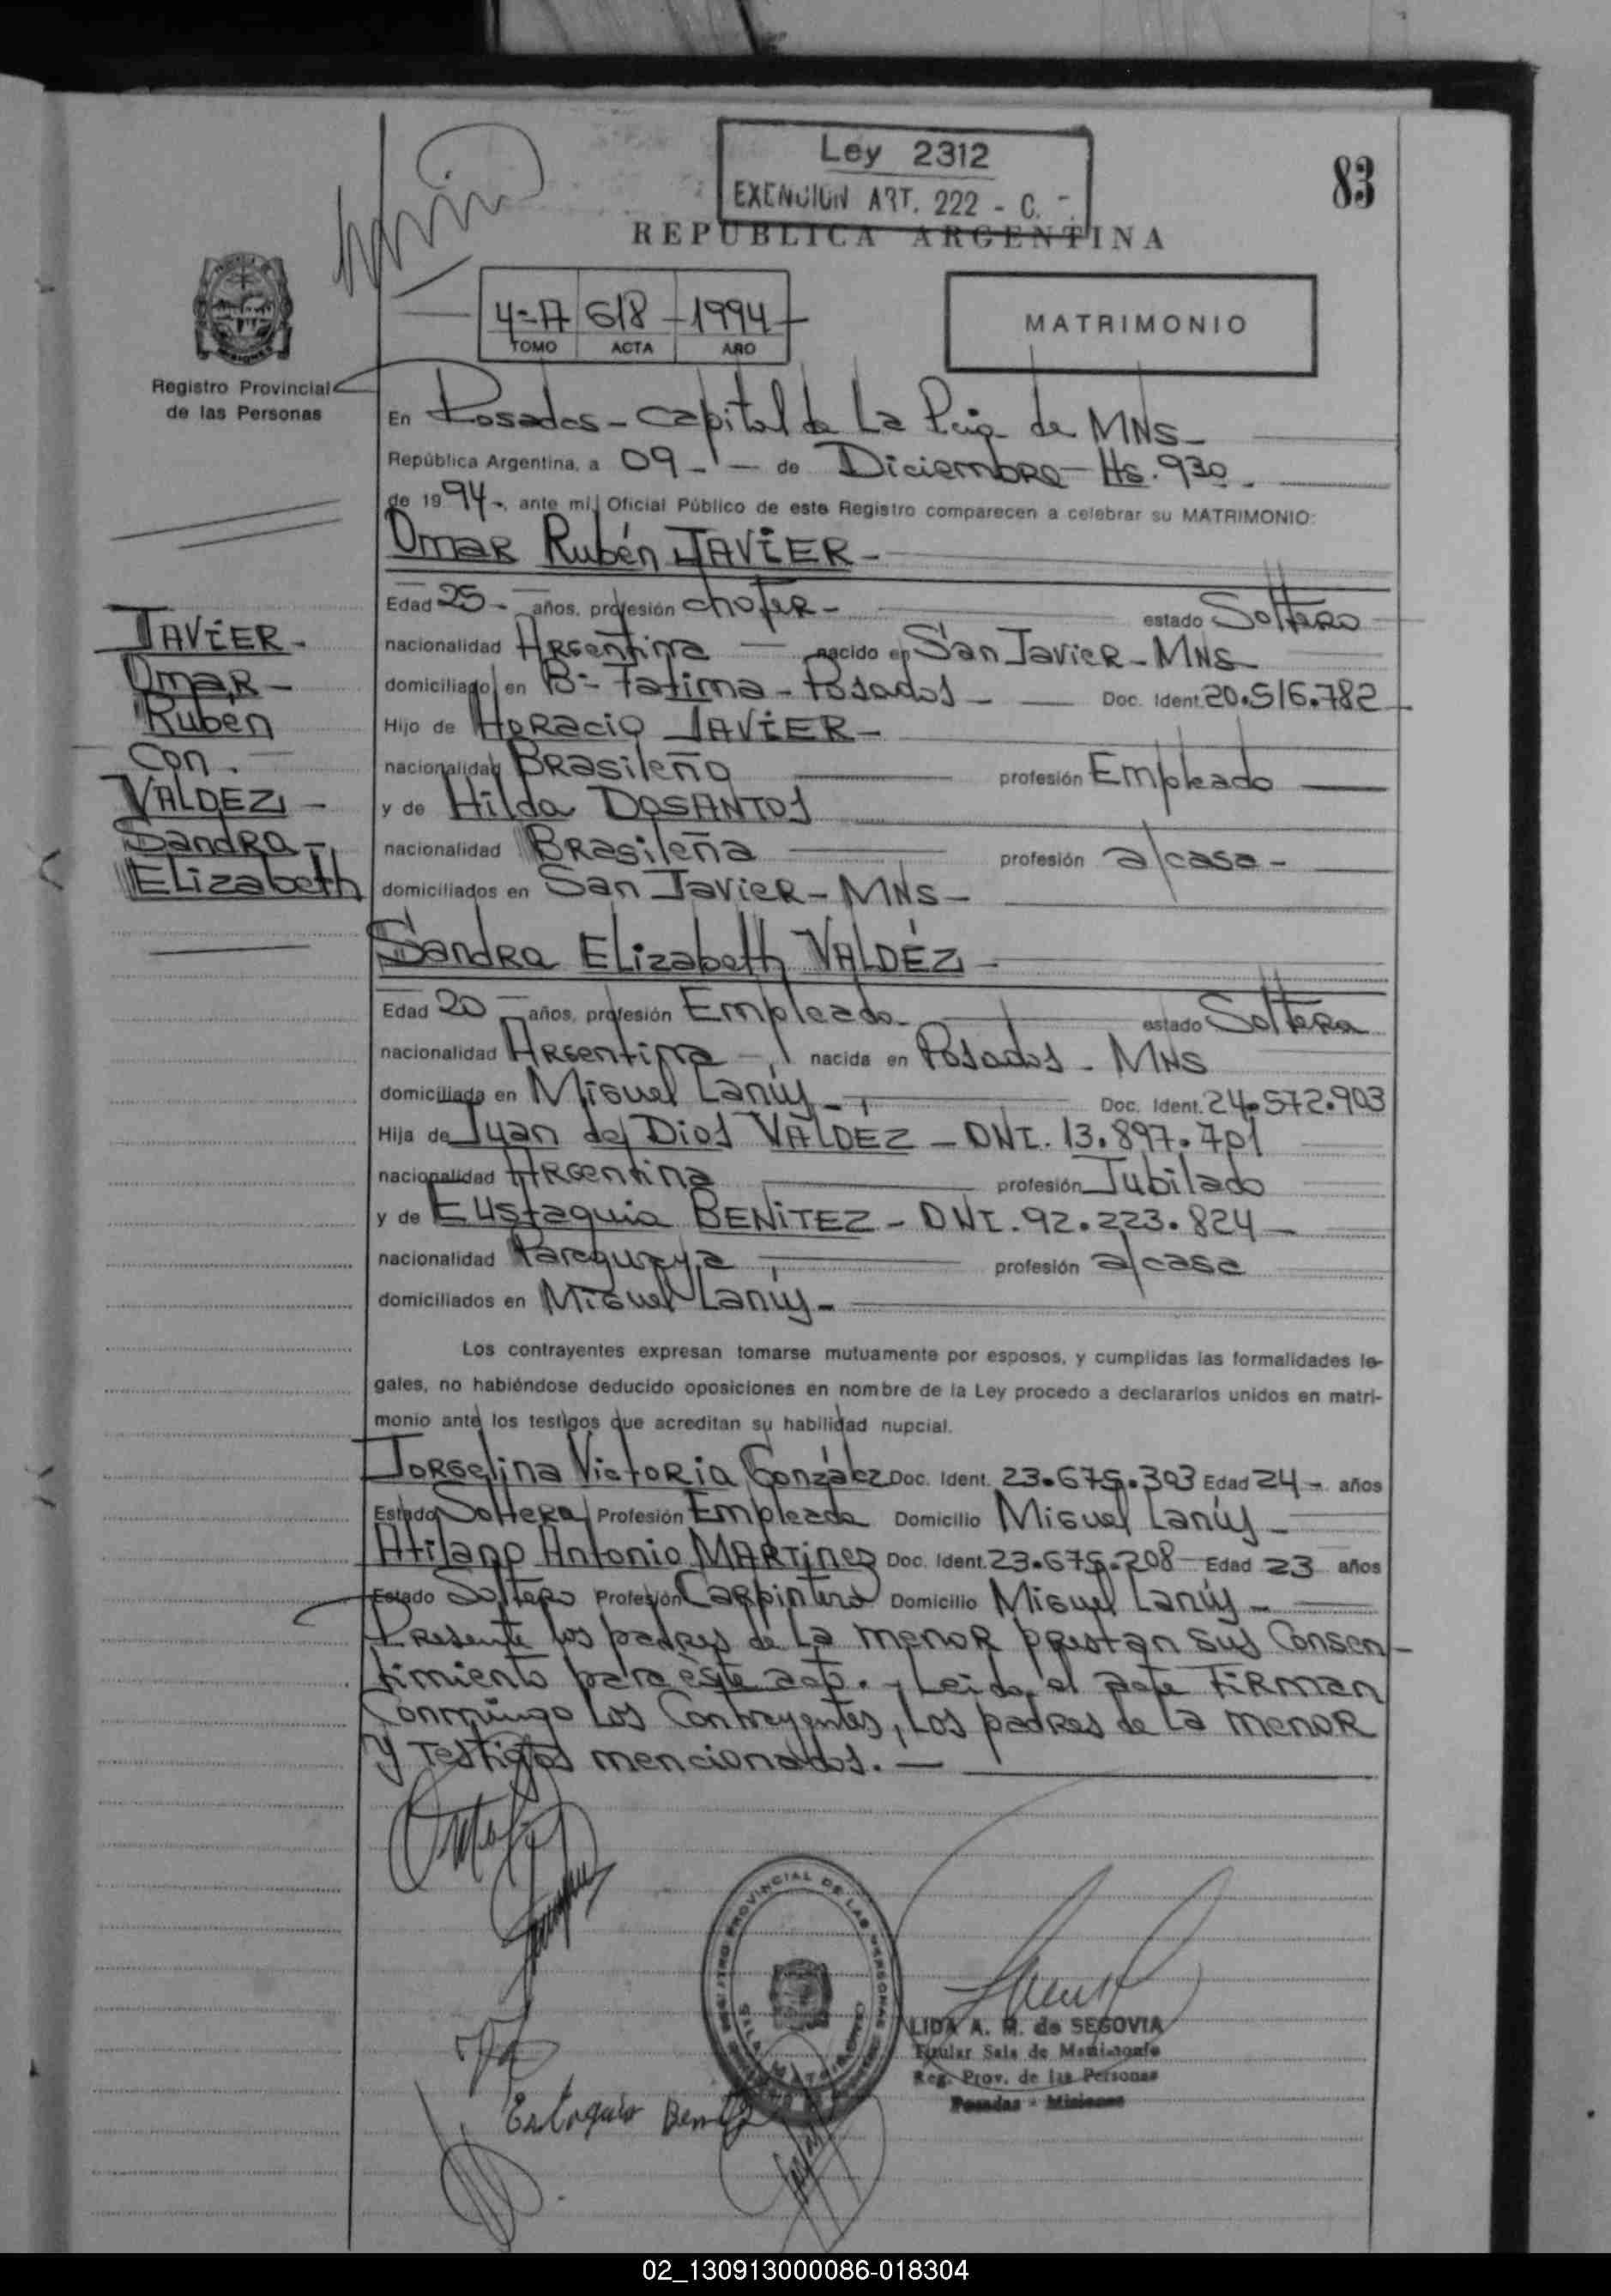 Ley 2312
EXENCION ART. 222 - C.
83
REPUBLICA ARGENTINA
4=A 618 1994
TOMO ACTA AÑO
MATRIMONIO
MISIONES
Registro Provincial
de las Personas
En Posadas - Capital de La Pcia de MNS -
República Argentina, a 09 - de Diciembre - Hs. 930 -
de 1994 -, ante mí, Oficial Público de este Registro comparecen a celebrar su MATRIMONIO:
Omar Rubén JAVIER -
Edad 25 - años, profesión chofer - estado Soltero
nacionalidad Argentina nacido en San Javier - MNS
domiciliado en B= Fatima - Posadas - Doc. Ident. 20.516.782
Hijo de Horacio JAVIER -
nacionalidad Brasileño profesión Empleado
y de Hilda DOSANTOS
nacionalidad Brasileña profesión a/casa -
domiciliados en San Javier - MNS -
JAVIER -
Omar -
Rubén
Con -
VALDEZ -
Sandra -
Elizabeth
Sandra Elizabeth VALDÉZ -
Edad 20 años, profesión Empleada - estado Soltera
nacionalidad Argentina - nacida en Posadas - MNS
domiciliada en Miguel Lanús - Doc. Ident. 24.572.903
Hija de Juan de Dios VALDÉZ - DNI. 13.897.701
nacionalidad Argentina profesión Jubilado
y de Eustaquia BENITEZ - DNI. 92.223.824
nacionalidad Paraguaya profesión a/casa
domiciliados en Miguel Lanús -
Los contrayentes expresan tomarse mutuamente por esposos, y cumplidas las formalidades le-
gales, no habiéndose deducido oposiciones en nombre de la Ley procedo a declararlos unidos en matri-
monio ante los testigos que acreditan su habilidad nupcial.
Jorgelina Victoria González Doc. Ident. 23.675.303 Edad 24 - años
Estado Soltera Profesión Empleada Domicilio Miguel Lanús -
Atilano Antonio MARTINEZ Doc. Ident. 23.675.208 Edad 23 años
Estado Soltero Profesión Carpintero Domicilio Miguel Lanús -
Presente los padres de La menor prestan sus Consen-
timiento para éste acto. - Leída el acta Firman
Conmingo Los Contrayentes, Los padres de La menor
y Testigos mencionados. -
REGISTRO PROVINCIAL DE LAS PERSONAS
LIDA A. M. de SEGOVIA
Titular Sala de Matrimonio
Reg. Prov. de las Personas
Posadas - Misiones
Estaquia Benitez
02_130913000086-018304